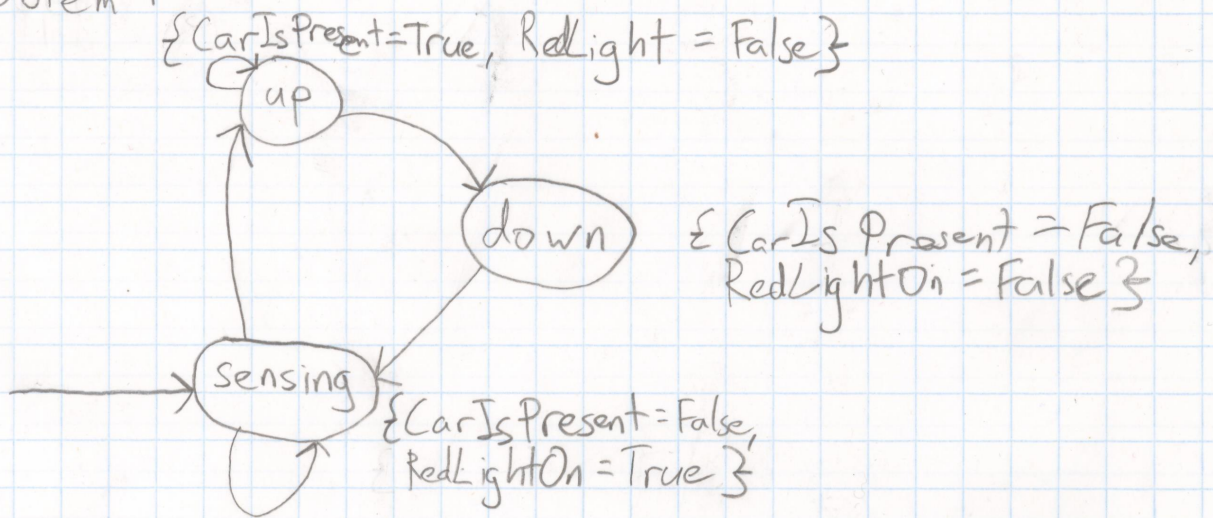 {CarIsPresent=True, RedLight = False}
up
down
{CarIsPresent = False,
RedLightOn = False}
sensing
{CarIsPresent=False,
RedLightOn=True}